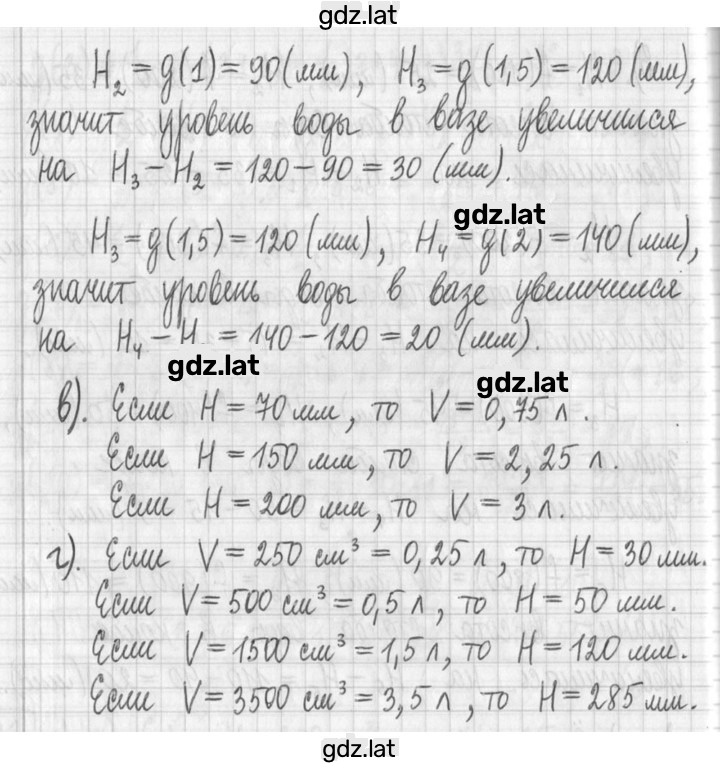 gdz.lat
H₂ = g(1) = 90(мм), H₃ = g(1,5) = 120(мм),
значит уровень воды в вазе увеличился
на H₃ – H₂ = 120 – 90 = 30 (мм).
gdz.lat
H₃ = g(1,5) = 120(мм), H₄ = g(2) = 140(мм),
значит уровень воды в вазе увеличился
на H₄ – H = 140 – 120 = 20 (мм).
gdz.lat
gdz.lat
в). Если H = 70 мм, то V = 0,75 л.
Если H = 150 мм, то V = 2,25 л.
Если H = 200 мм, то V = 3 л.
г). Если V = 250 см³ = 0,25 л, то H = 30 мм.
Если V = 500 см³ = 0,5 л, то H = 50 мм.
Если V = 1500 см³ = 1,5 л, то H = 120 мм.
Если V = 3500 см³ = 3,5 л, то H = 285 мм.
gdz.lat